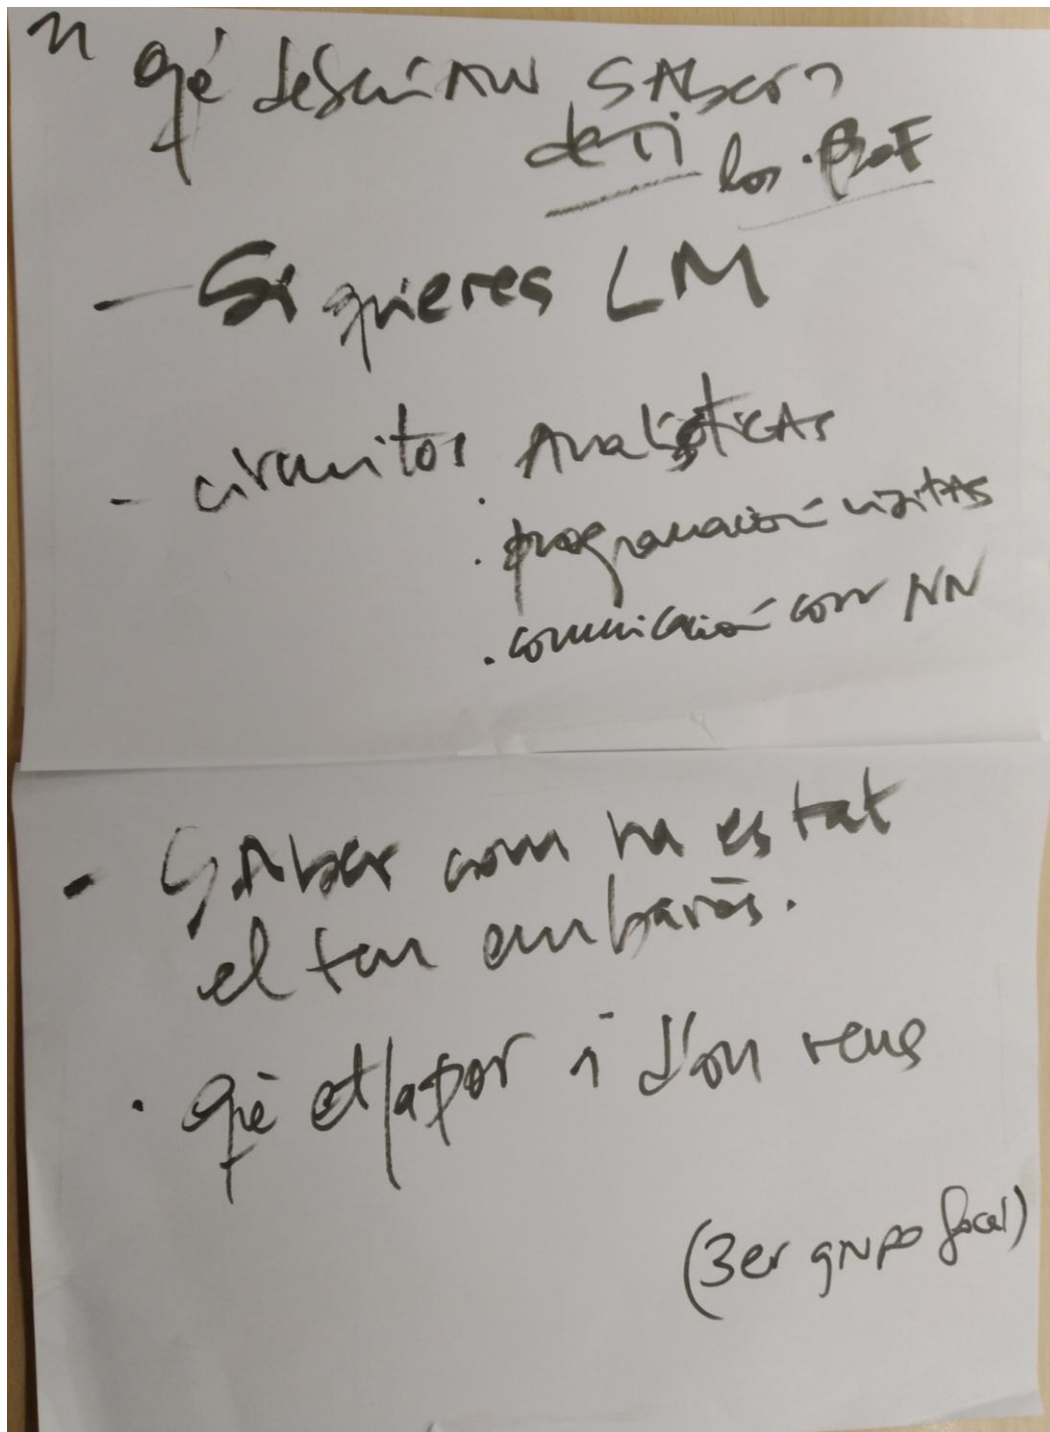 qé deberían saber
de ti los prof
- Si quieres LM
- circuitos Analíticas
. programación visitas
. comunicación con NN
- Saber com ha estat
el teu embaràs.
. què et fa por i d'on vens
(3er grupo focal)